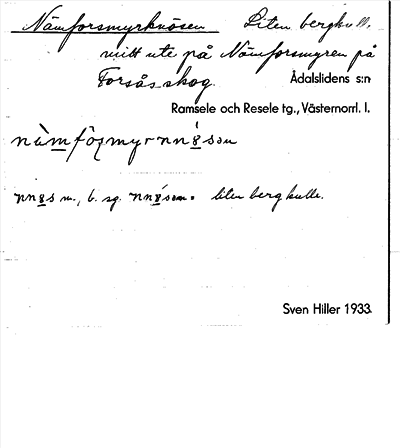 Nämforsmyrknösen Liten bergkull,
mitt ute på Nämforsmyren på
Forsås skog. Ådalslidens s:n
Ramsele och Resele tg., Västernorrl. l.
liten bergkulle.
Sven Hiller 1933.